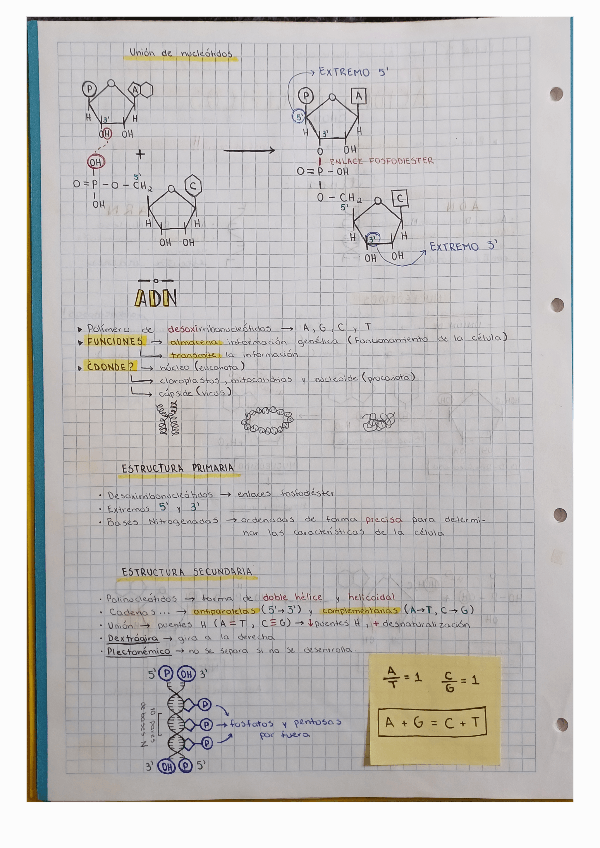 Unión de nucleótidos
EXTREMO 5'
P
A
P
A
5'
H
3'
H
H
3'
H
OH
OH
O
OH
ENLACE FOSFODIESTER
OH
+
O=P-OH
O=P-O-CH2
5'
C
O-CH2
5'
C
OH
H
H
H
3'
H
OH
OH
OH
OH
EXTREMO 3'
ADN
Polímero de desoxirribonucleótidos → A, G, C, T
FUNCIONES → almacena información genética (funcionamiento de la célula)
transmite la información
¿DONDE? → núcleo (eucariota)
cloroplastos, mitocondrias y nucleoide (procariota)
cápside (virus)
ESTRUCTURA PRIMARIA
· Desoxirribonucleótidos → enlaces fosfodiéster
· Extremos 5' y 3'
· Bases Nitrogenadas → ordenadas de forma precisa para determi-
nar las características de la célula
ESTRUCTURA SECUNDARIA
· Polinucleótidos → forma de doble hélice y helicoidal
· Cadenas... → antiparalelas (5'→3') y complementarias (A→T, C→G)
· Unión → puentes H (A=T, C≡G) → ↓puentes H, + desnaturalización
· Dextrógira → gira a la derecha
· Plectonémico → no se separa si no se desenrolla
5' P OH 3'
P
P → fosfatos y pentosas
por fuera
P
3' OH P 5'
A/T = 1 C/G = 1
A + G = C + T